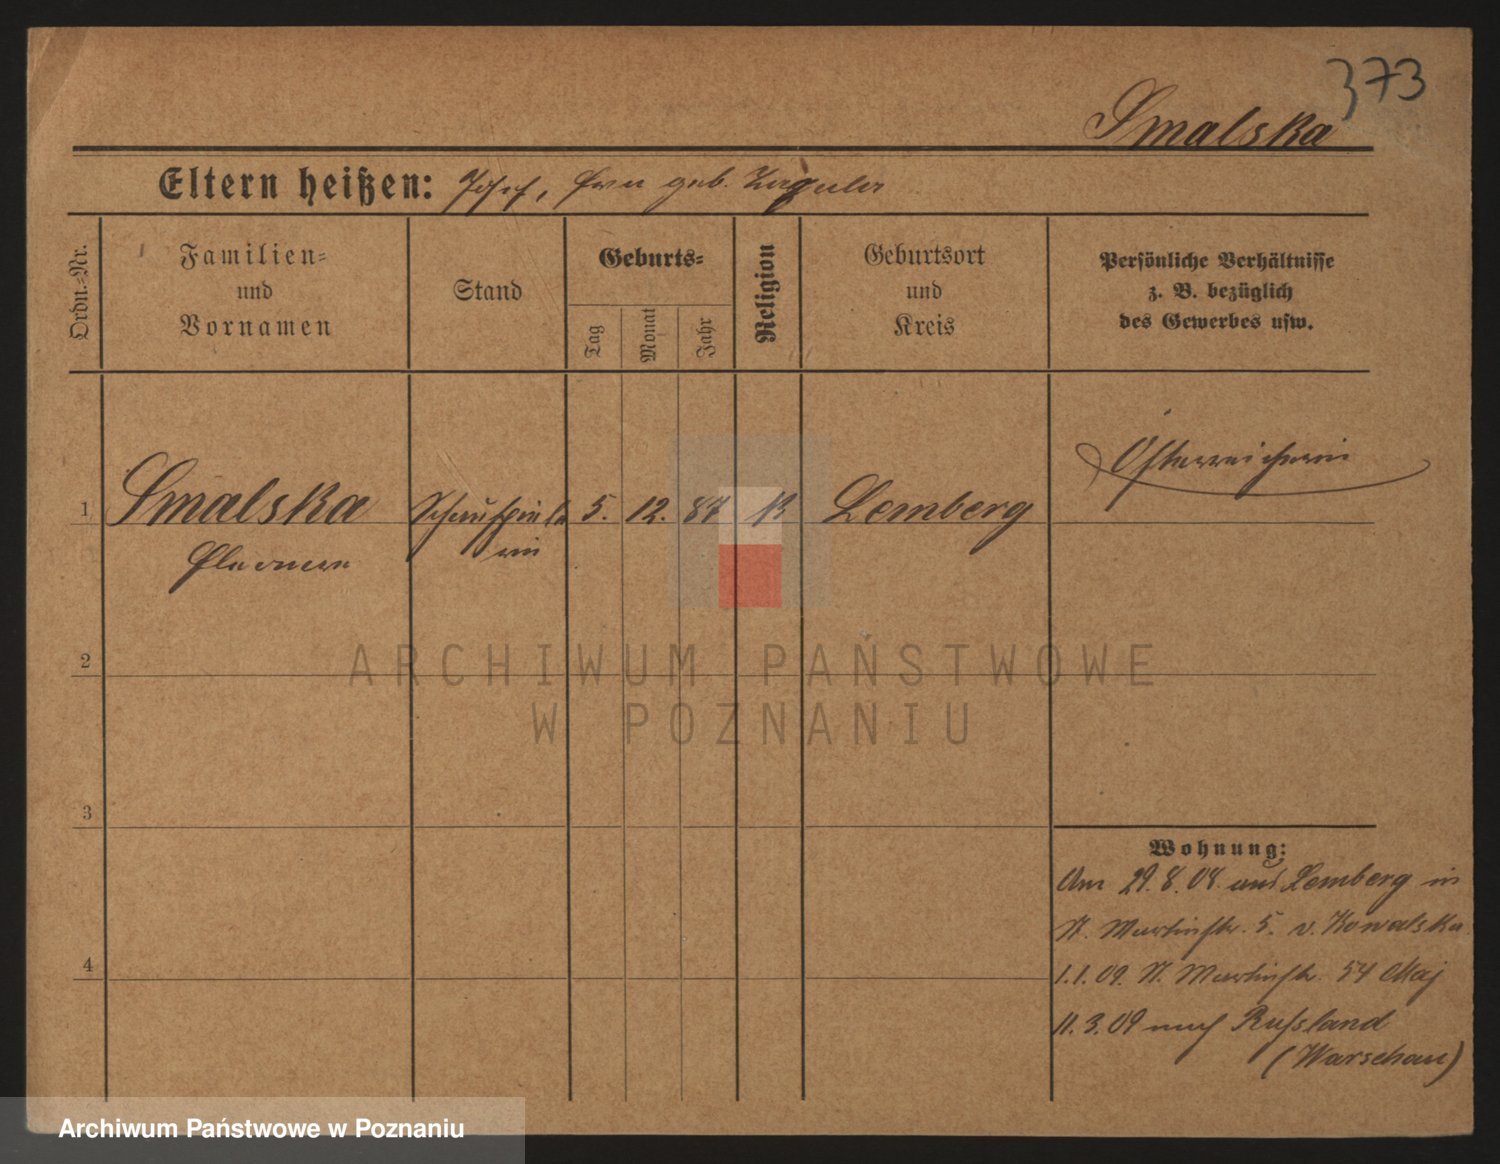 373
Smalska
Eltern heißen: Josef, geb.
Ordn.-Nr.
Familien-
und
Vornamen
Stand
Geburts-
Tag
Monat
Jahr
Religion
Geburtsort
und
Kreis
Persönliche Verhältnisse
z. B. bezüglich
des Gewerbes usw.
1 Smalska Schauspiele 5. 12. 87 Lemberg Österreicherin
rin
2
3
4
Wohnung:
Am 29.8.08. aus Lemberg in
St. Martinstr. 5. v. Kowalska
1.1.09. St. Martinstr. 54 Maj
11.3.09 nach Russland
(Warschau)
ARCHIWUM PAŃSTWOWE
W POZNANIU
Archiwum Państwowe w Poznaniu